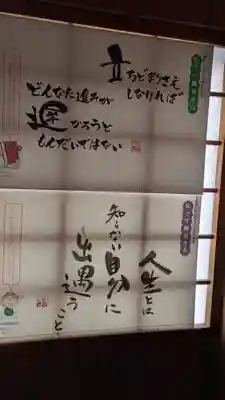 立ちどまりさえ
しなければ
どんなに進みが
遅かろうと
もんだいではない
人生とは
知らない自分に
出遇う
こと